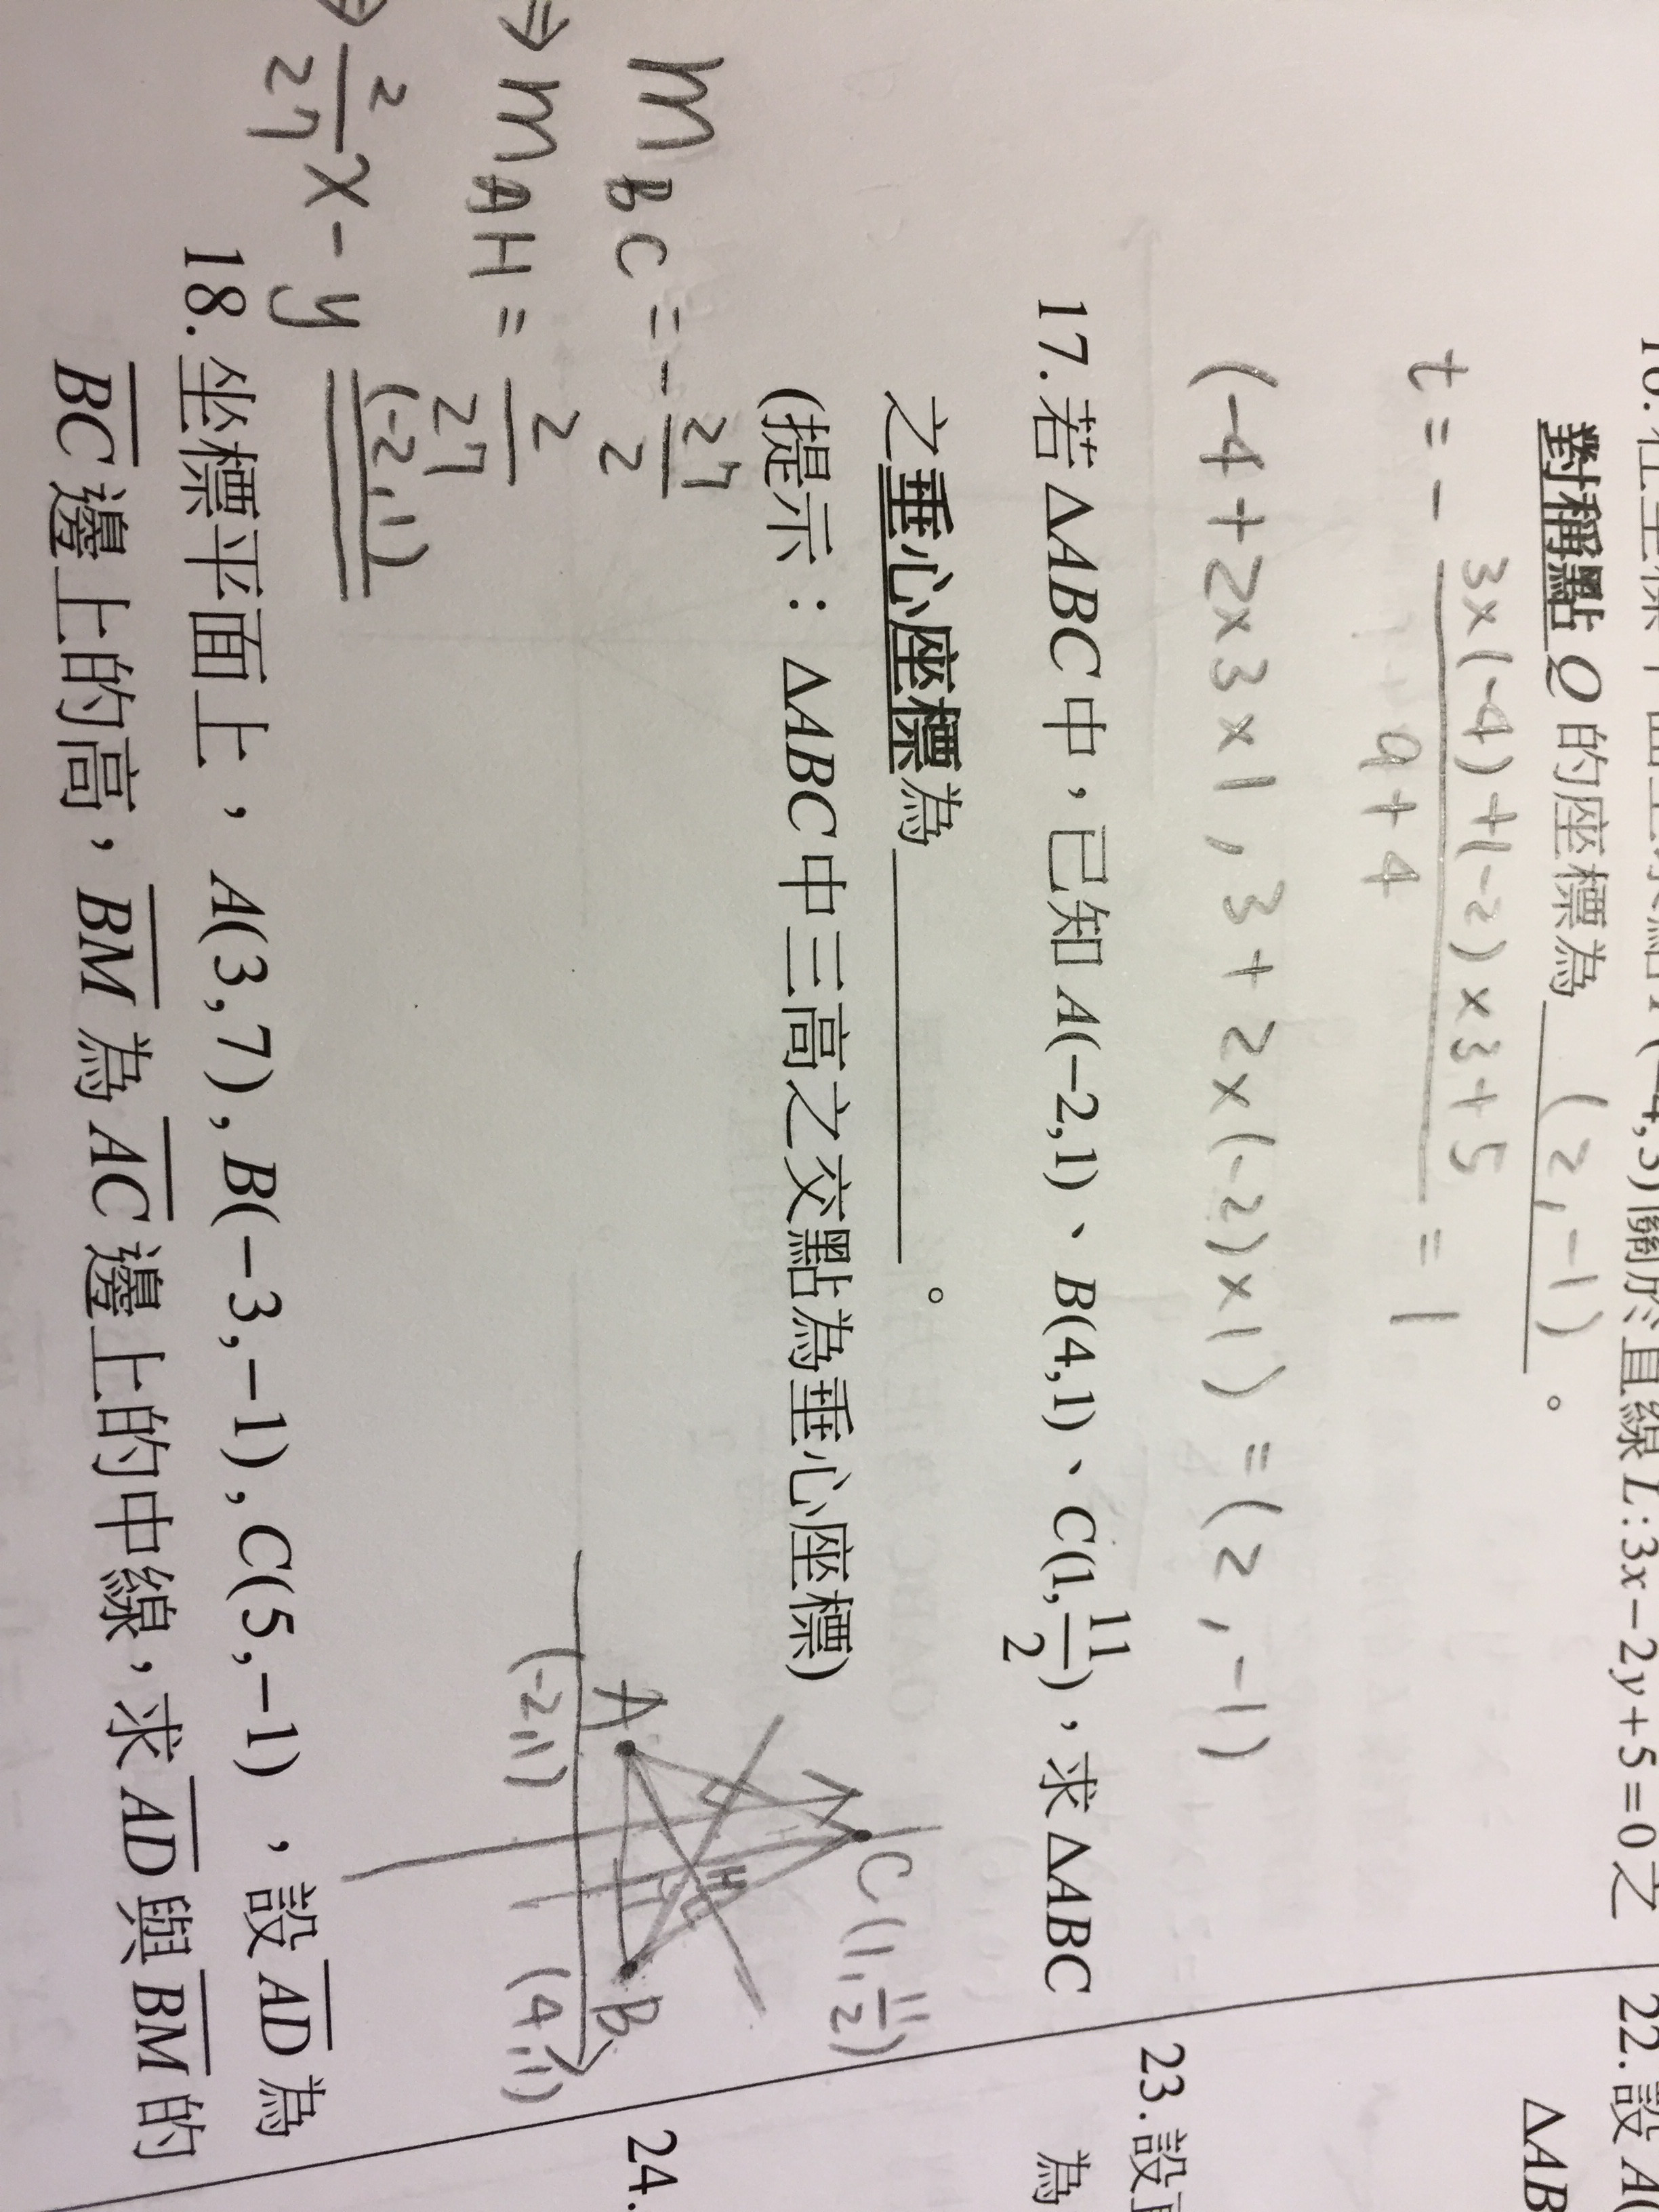 16.在坐標平面上求點P(-4,3)關於直線L:3x-2y+5=0之
對稱點Q的座標為 (2,-1) 。
t=- 3x(-4)+(-2)x3+5 / 9+4 =1
(-4+2x3x1,3+2x(-2)x1)=(2,-1)
17.若△ABC中,已知A(-2,1)、B(4,1)、C(1,11/2),求△ABC
之垂心座標為________。
(提示:△ABC中三高之交點為垂心座標)
m BC=-27/2
⇒m AH=2/27
(-2,1)
⇒2/27 x-y
A
(-2,1)
B
(4,1)
C(1,11/2)
H
18.坐標平面上,A(3,7),B(-3,-1),C(5,-1),設AD為
BC邊上的高,BM為AC邊上的中線,求AD與BM的
22.設A(
△AB
23.設
為
24.